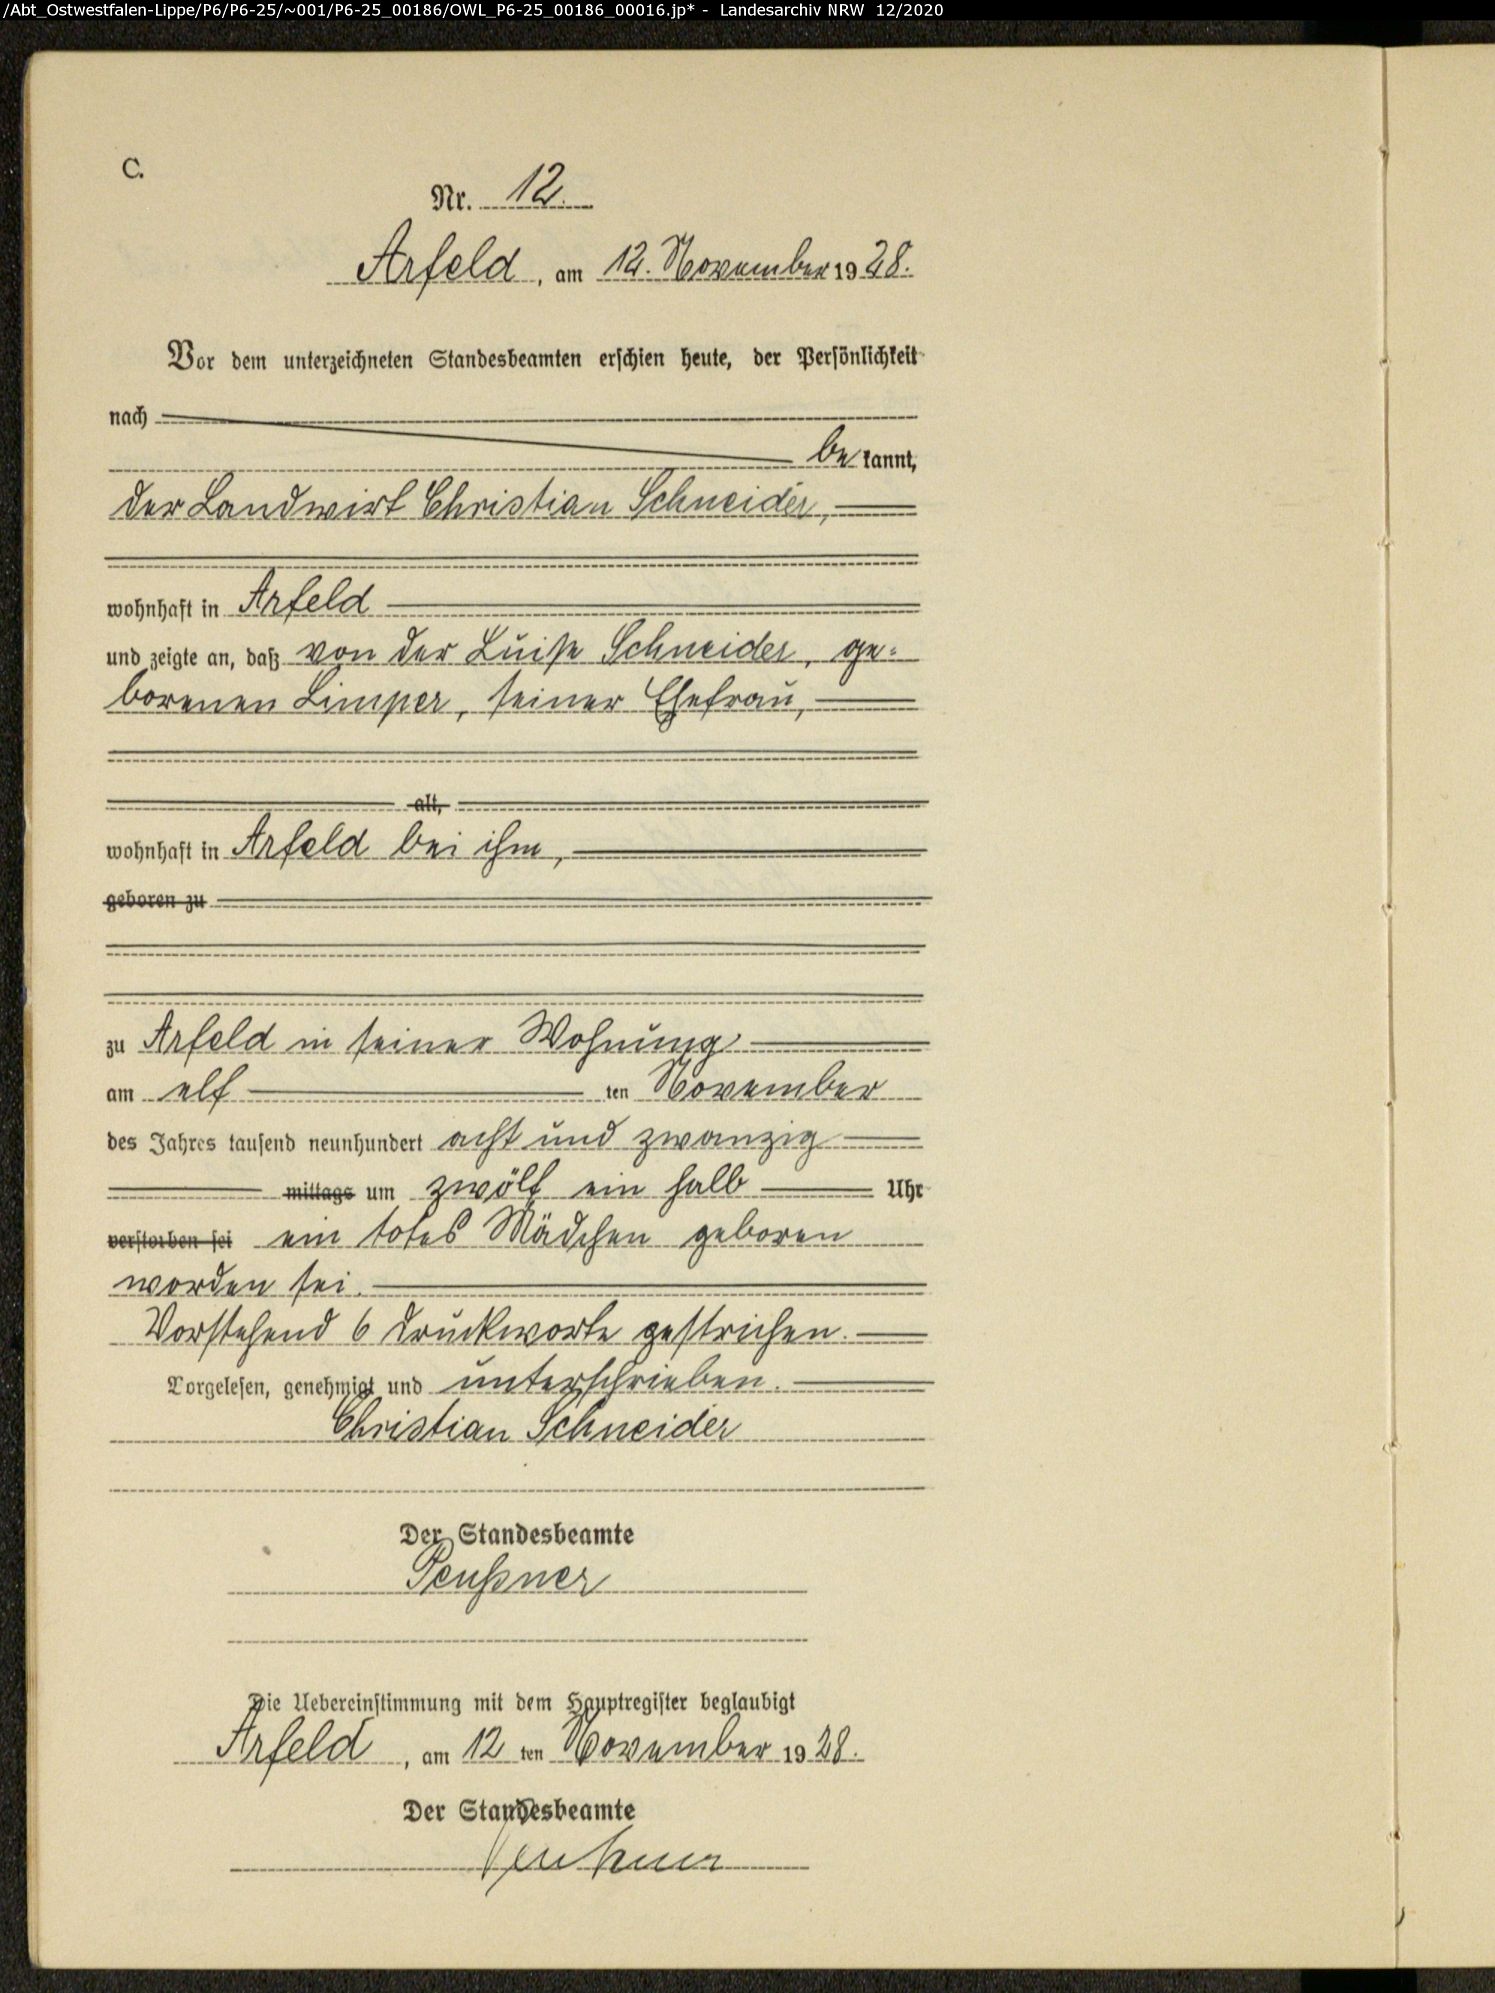 /Abt_Ostwestfalen-Lippe/P6/P6-25/~001/P6-25_00186/OWL_P6-25_00186_00016.jp* - Landesarchiv NRW 12/2020
C.
Nr. 12.
Arfeld, am 12. November 1928.
Vor dem unterzeichneten Standesbeamten erschien heute, der Persönlichkeit
nach
be kannt,
der Landwirt Christian Schneider,
wohnhaft in Arfeld
und zeigte an, daß von der Luise Schneider, ge-
borenen Limper, seiner Ehefrau,
alt,
wohnhaft in Arfeld bei ihm,
geboren zu
zu Arfeld in seiner Wohnung
am elf ten November
des Jahres tausend neunhundert acht und zwanzig
mittags um zwölf ein halb Uhr
verstorben sei ein totes Mädchen geboren
worden sei.
Vorstehend 6 Druckworte gestrichen.
Vorgelesen, genehmigt und unterschrieben.
Christian Schneider
Der Standesbeamte
Peußner
Die Uebereinstimmung mit dem Hauptregister beglaubigt
Arfeld, am 12 ten November 1928.
Der Standesbeamte